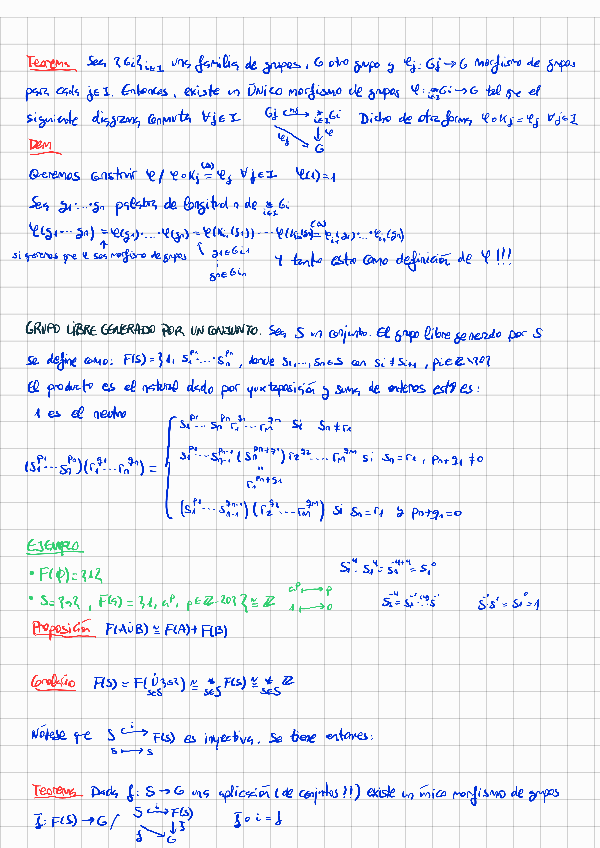 Teorema Sea {Gi}i∈I una familia de grupos, G otro grupo y φj: Gj → G morfismo de grupos
para cada j∈I. Entonces, existe un único morfismo de grupos φ: *i∈I Gi → G tal que el
siguiente diagrama conmuta ∀j∈I Gj → *i∈I Gi Dicho de otra forma φ∘κj = φj ∀j∈I
φj ↓φ
G
Dem
Queremos construir φ / φ∘κj = φj ∀j∈I φ(1)=1
Sea g1···gn palabra de longitud n de *i∈I Gi
φ(g1···gn) = φ(g1)·...·φ(gn) = φ(κi1(g1))···φ(κin(gn)) = φi1(g1)·...·φin(gn)
si queremos que φ sea morfismo de grupos g1∈Gi1
⋮
gn∈Gin
Y tanto esto como definición de φ!!!
GRUPO LIBRE GENERADO POR UN CONJUNTO. Sea S un conjunto. El grupo libre generado por S
se define como: F(S) = {1, s1^p1···sn^pn, donde s1,...,sn∈S con si≠si+1, pi∈Z\{0}}
El producto es el natural dado por yuxtaposición y suma de enteros esto es:
1 es el neutro
s1^p1···sn^pn r1^q1···rm^qm si sn≠r1
(s1^p1···sn^pn)(r1^q1···rn^qn) = s1^p1···sn-1^pn-1(sn^pn+q1) r2^q2···rm^qm si sn=r1, pn+q1≠0
"
r1^pn+q1
(s1^p1···sn-1^pn-1)(r2^q2···rm^qm) si sn=r1 y pn+q1=0
EJEMPLO
• F(∅)={1}
s1^-4·s1^4=s1^-4+4=s1^0
• S={a}, F(a)={1, a^p, p∈Z\{0}}≅Z a^p ↦ p
1 ↦ 0
s^1s^-1=s1^0=1
Proposición F(A∪̇B) ≅ F(A)*F(B)
Corolario F(S) = F(∪̇s∈S {s}) ≅ *s∈S F(s) ≅ *s∈S Z
Nótese que S ↪ F(S) es inyectiva. Se tiene entonces:
s ↦ s
Teorema Dada f: S → G una aplicación (de conjuntos!!) existe un único morfismo de grupos
f̄: F(S) → G / S ↪ F(S) f̄∘i = f
f ↓f̄
G